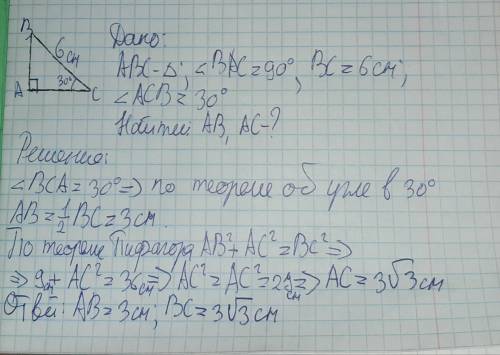 B
6 см
A
30°
C
Дано:
ABC-Δ; ∠BAC=90°, BC=6см;
∠ACB=30°
AB, AC-?
Решение:
∠BCA=30°=> по теореме об угле в 30°
AB=1/2 BC=3см.
По теореме Пифагора AB²+AC²=BC²=>
=> 9см+AC²=36см=>AC²=AC²=29см=>AC=3√3см
Ответ: AB=3см; BC=3√3см